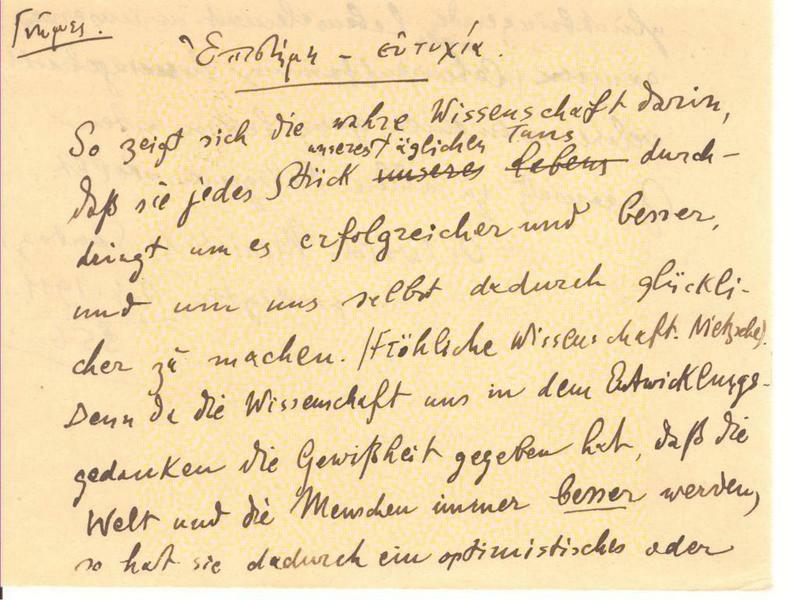 Γνῶμες.
Ἐπιστήμη – εὐτυχία.
So zeigt sich die wahre Wissenschaft darin,
unseres täglichen Tuns
daß sie jedes Stück unseres Lebens durch-
dringt um es erfolgreicher und besser,
und um uns selbst dadurch glückli-
cher zu machen. (Fröhliche Wissenschaft. Nietzsche).
Denn da die Wissenschaft uns in dem Entwicklungs-
gedanken die Gewißheit gegeben hat, daß die
Welt und die Menschen immer besser werden,
so hat sie dadurch ein optimistisches oder